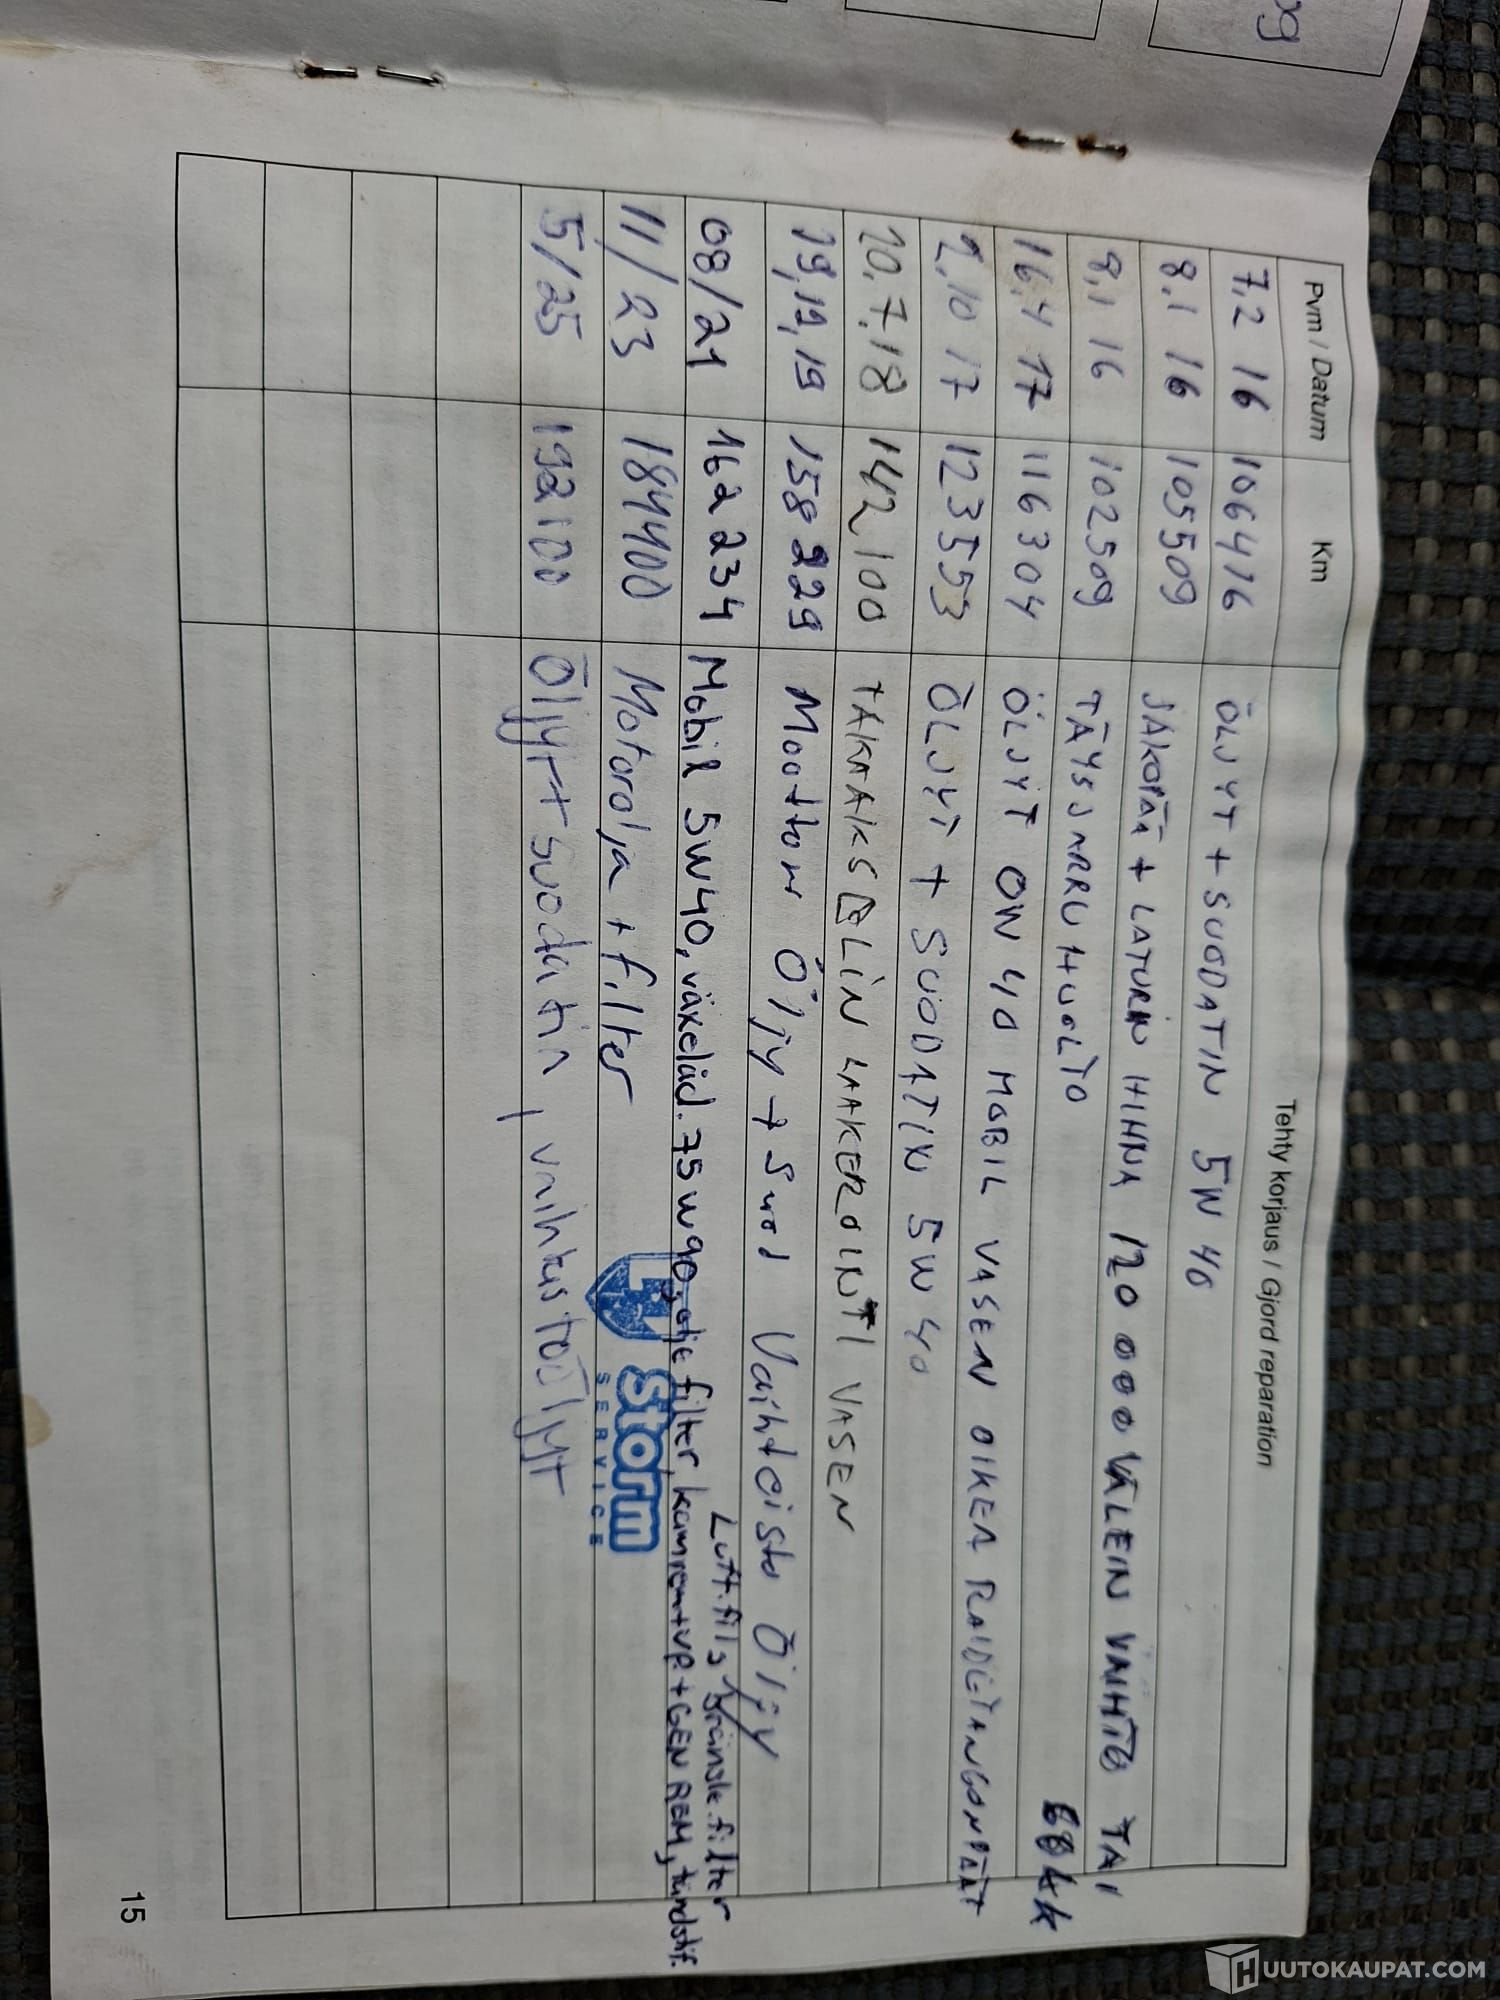 09
Pvm / Datum Km Tehty korjaus / Gjord reparation
7,2 16 106416 ÖLJYT + SUODATIN 5W 40
8.1 16 105509 JAKOPÄÄ + LATURIN HIHNA 120 000 VÄLEIN VAIHTO TAI
8,1 16 102509 TÄYSJARRUHUOLTO
16.4 17 116304 ÖLJYT 0W 40 MOBIL VASEN OIKEA RAIDETANGONPÄÄT
2,10 17 123553 ÖLJYT + SUODATIN 5W 40
20.7.18 142100 TAKAAKSELIN LAAKEROINTI VASEN
19,12,19 158229 Moottori Öljy + Suod Vaihdeisto Öljy
Luft.fil, bränsle.filter
08/21 162234 Mobil 5W40, växelåd. 75w90, olje filter, kamrem+VP+GEN REM, tändstif.
11/23 184400 Motorolja + filter
storm
SERVICE
5/25 192100 Öljyt+suodatin, vaihtustoöljyt
15
HUUTOKAUPAT.COM